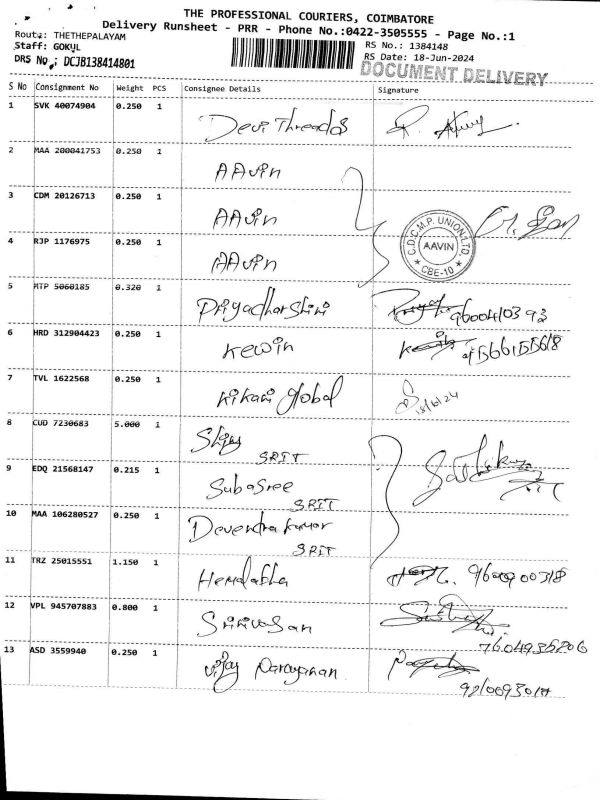 THE PROFESSIONAL COURIERS, COIMBATORE
Delivery Runsheet - PRR - Phone No.:0422-3505555 - Page No.:1
Route: THETHEPALAYAM
Staff: GOKUL
DRS No.: DCJB138414801
RS No.: 1384148
RS Date: 18-Jun-2024
DOCUMENT DELIVERY
S No Consignment No Weight PCS Consignee Details Signature
1 SVK 40074904 0.250 1 Devi Threads
2 MAA 200041753 0.250 1 AAvin
3 CDM 20126713 0.250 1 AAvin
C.D.C.M.P. UNION LTD. AAVIN ★ CBE-10 ★
4 RJP 1176975 0.250 1 AAvin
5 MTP 5060185 0.320 1 Priyadharshini 9600410392
6 HRD 312904423 0.250 1 Kewin
7 TVL 1622568 0.250 1 Kikani global 18/6/24
8 CUD 7230683 5.000 1
SRIT
9 EDQ 21568147 0.215 1 Subasree
SRIT
10 MAA 106280527 0.250 1 Devendra kumar
SRIT
11 TRZ 25015551 1.150 1 Hemalabha 9600900318
12 VPL 945707883 0.800 1 Srinivasan
13 ASD 3559940 0.250 1 Vijay Narayanan